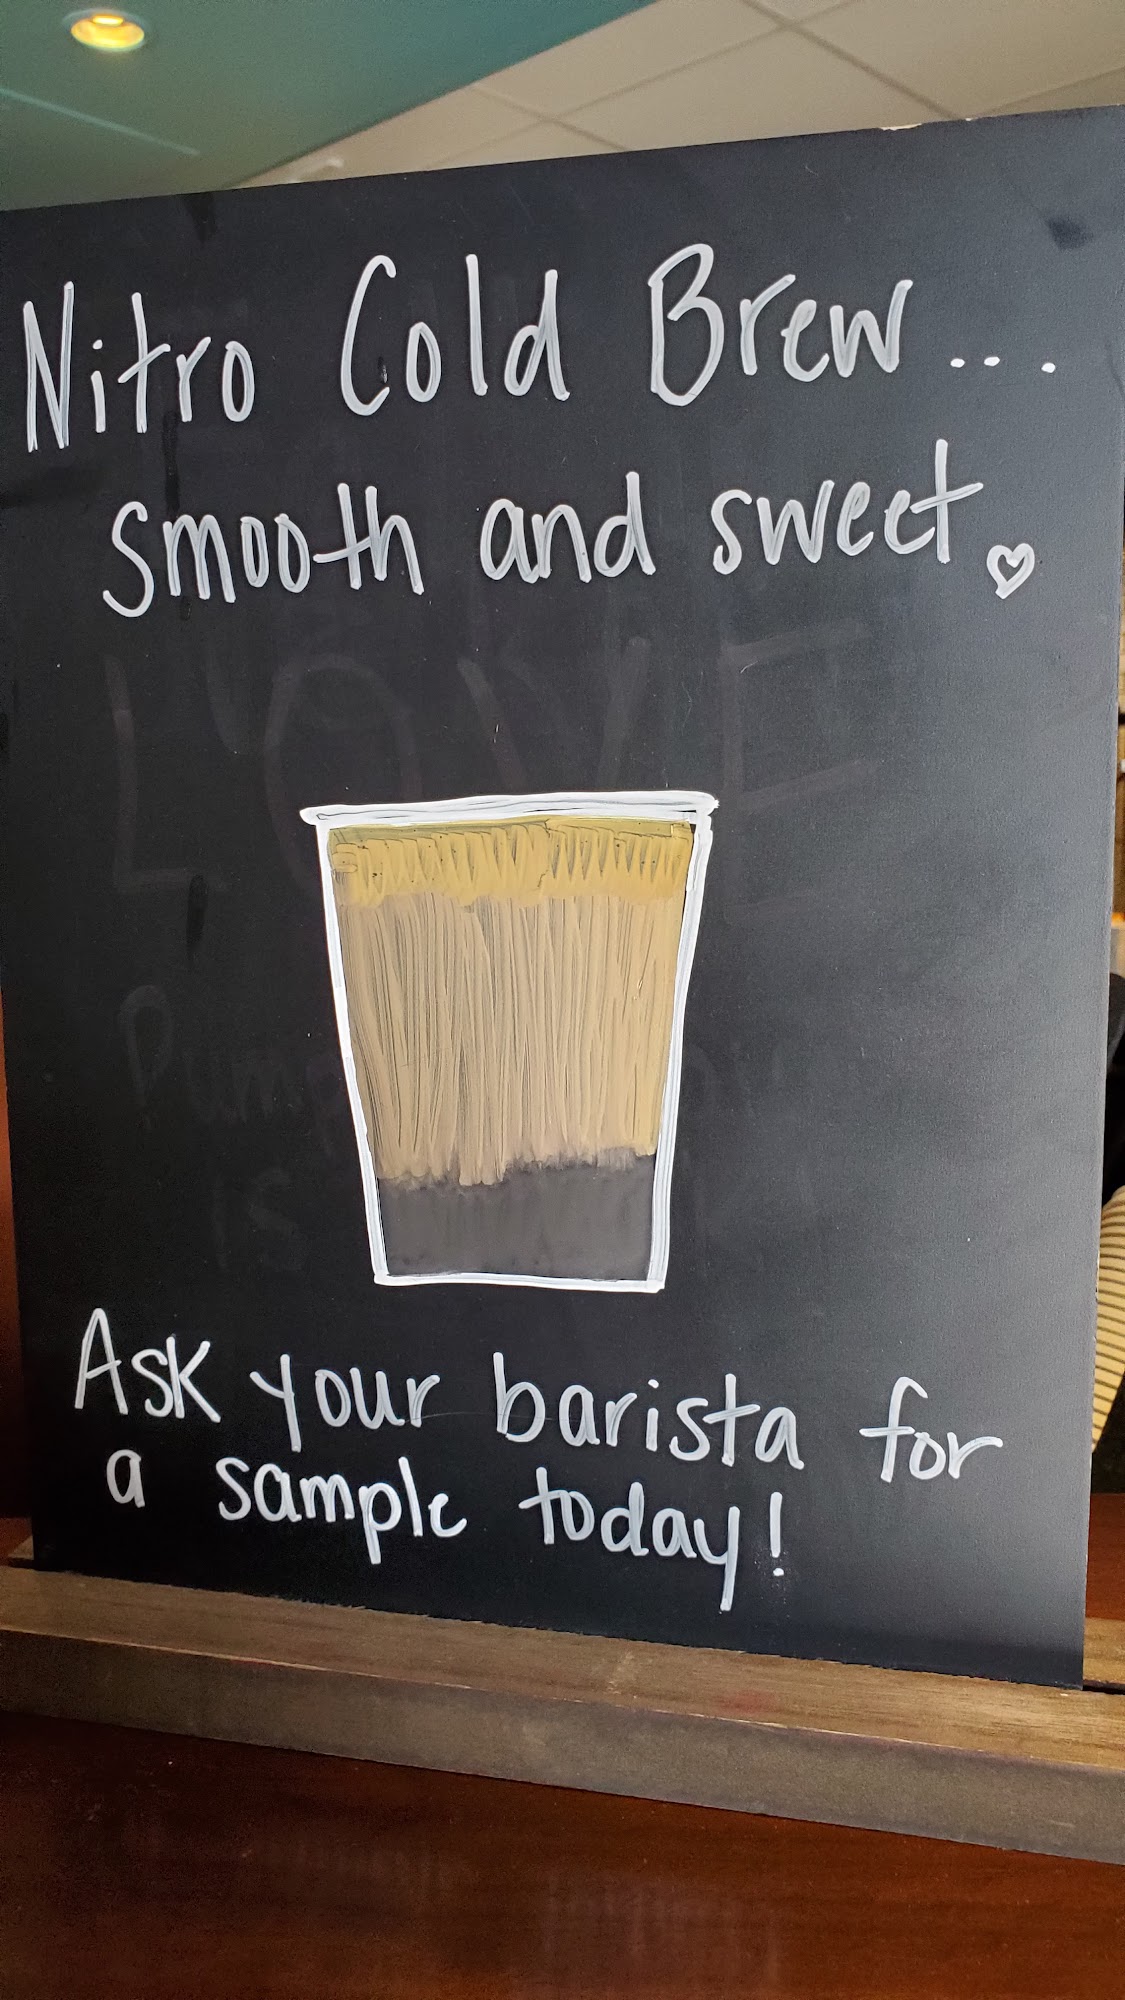 Nitro Cold Brew....
smooth and sweet
LOVE
Ask your barista for
a sample today!